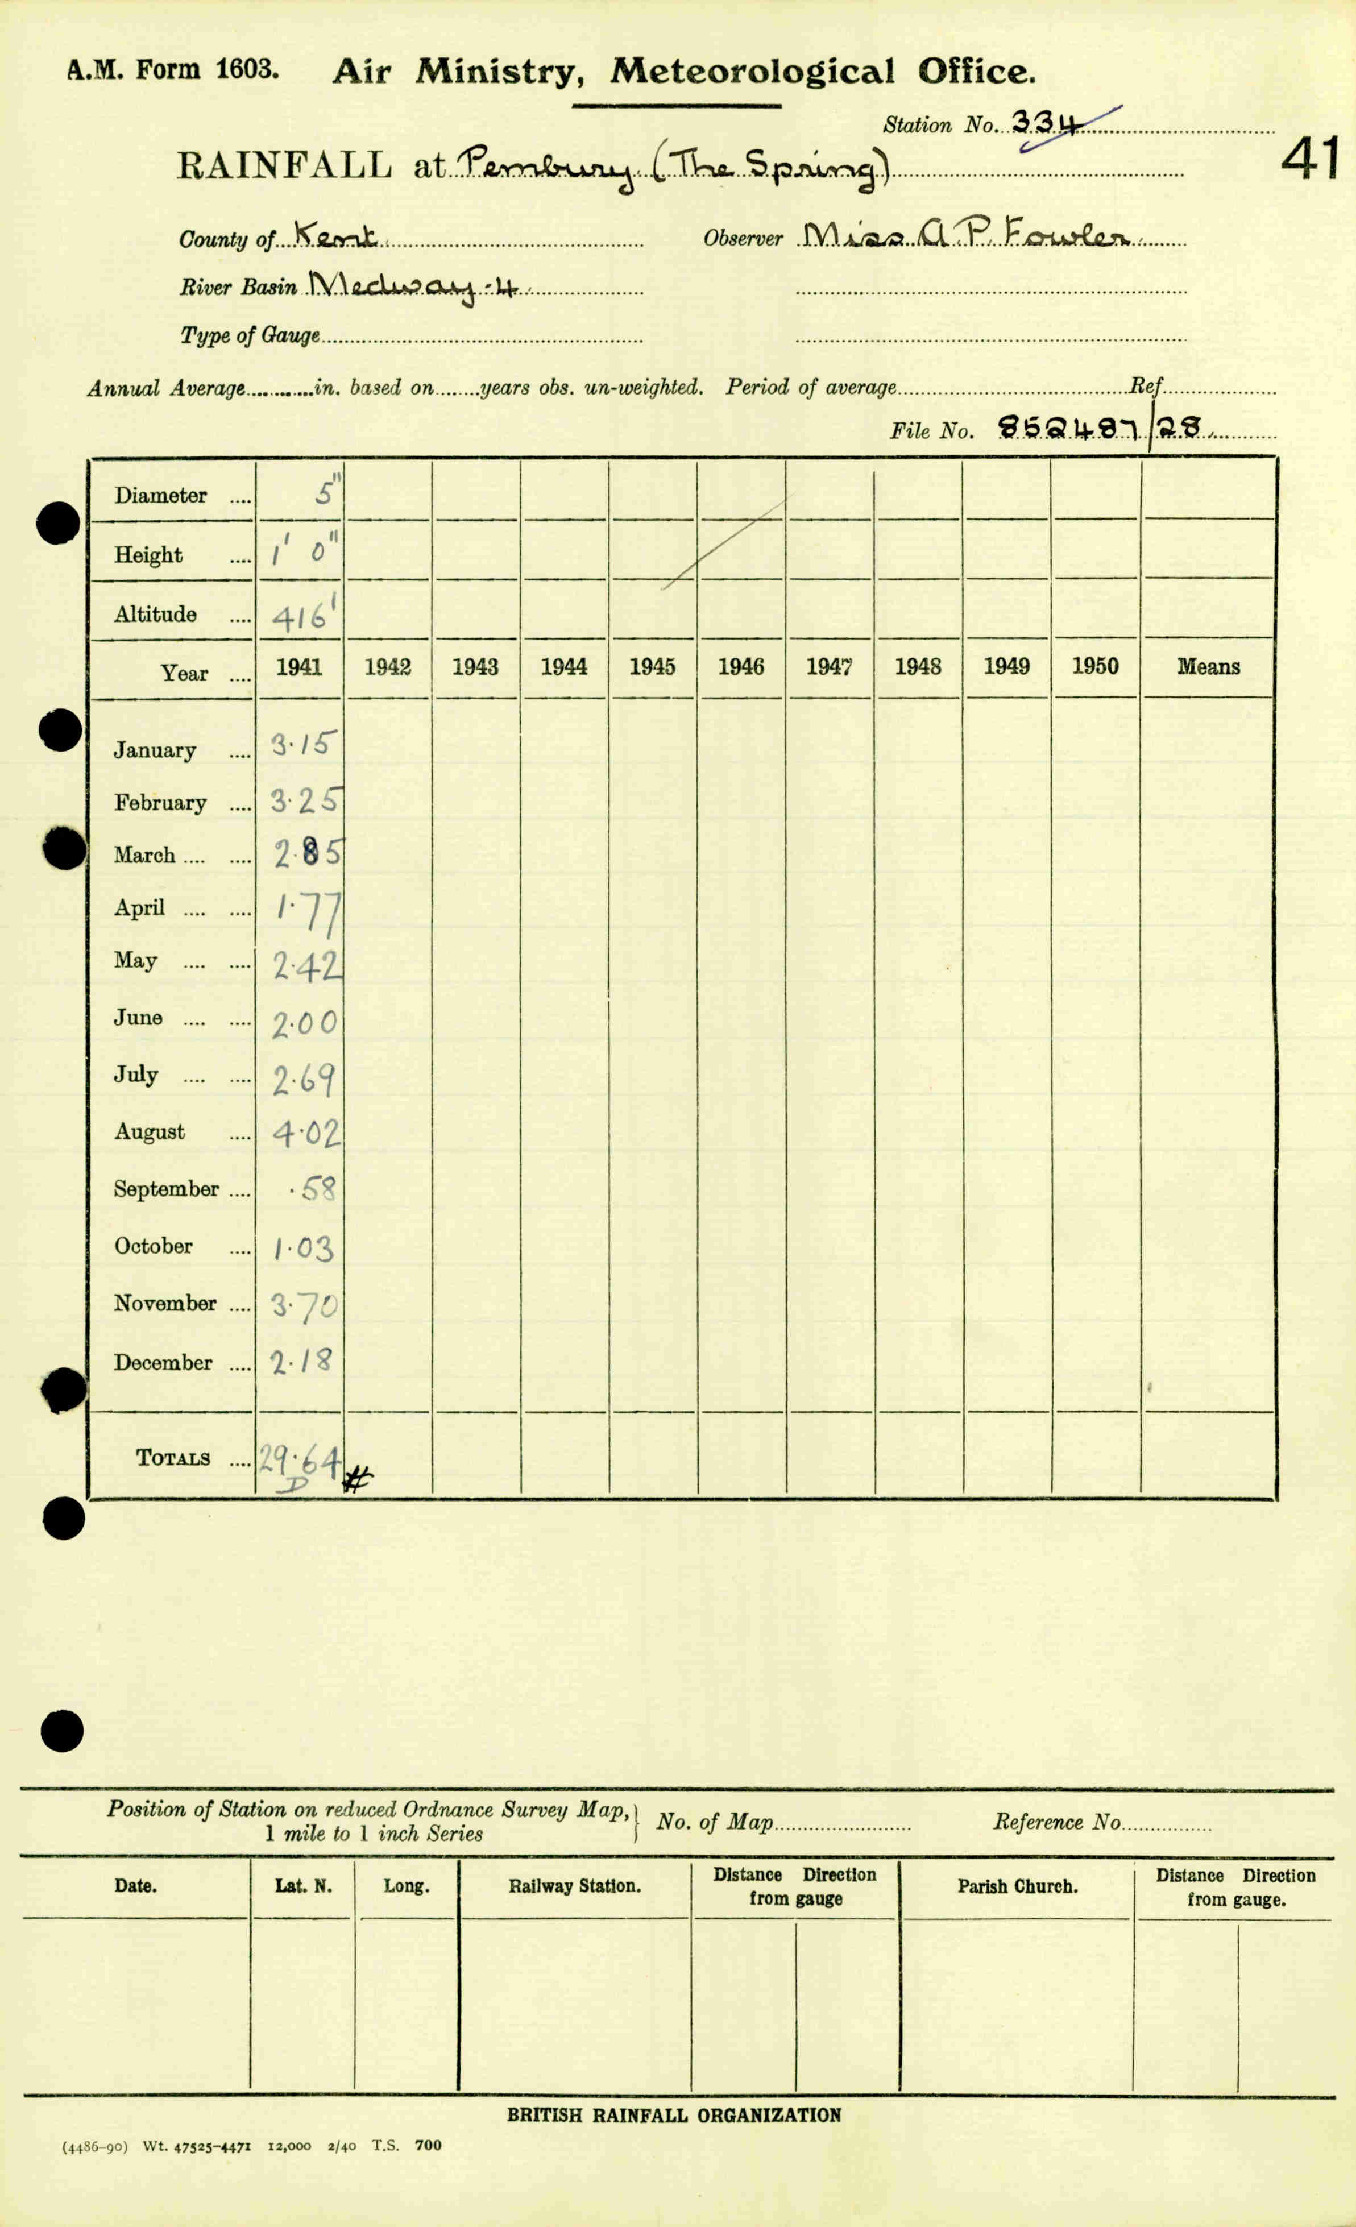 A.M. Form 1603. Air Ministry, Meteorological Office.
Station No. 334
41
RAINFALL at Pembury (The Spring)
County of Kent Observer Miss A. P. Fowler
River Basin Medway - 4
Type of Gauge
Annual Average in. based on years obs. un-weighted. Period of average Ref.
File No. 852487/28
Diameter .... 5"
Height .... 1' 0"
Altitude .... 416'
Year .... 1941 1942 1943 1944 1945 1946 1947 1948 1949 1950 Means
January .... 3.15
February .... 3.25
March .... .... 2.85
April .... .... 1.77
May .... .... 2.42
June .... .... 2.00
July .... .... 2.69
August .... 4.02
September .... .58
October .... 1.03
November .... 3.70
December .... 2.18
TOTALS .... 29.64 #
D
Position of Station on reduced Ordnance Survey Map, 1 mile to 1 inch Series } No. of Map Reference No.
Date. Lat. N. Long. Railway Station. Distance Direction from gauge Parish Church. Distance Direction from gauge.
BRITISH RAINFALL ORGANIZATION
(4486-90) Wt. 47525-4471 12,000 2/40 T.S. 700